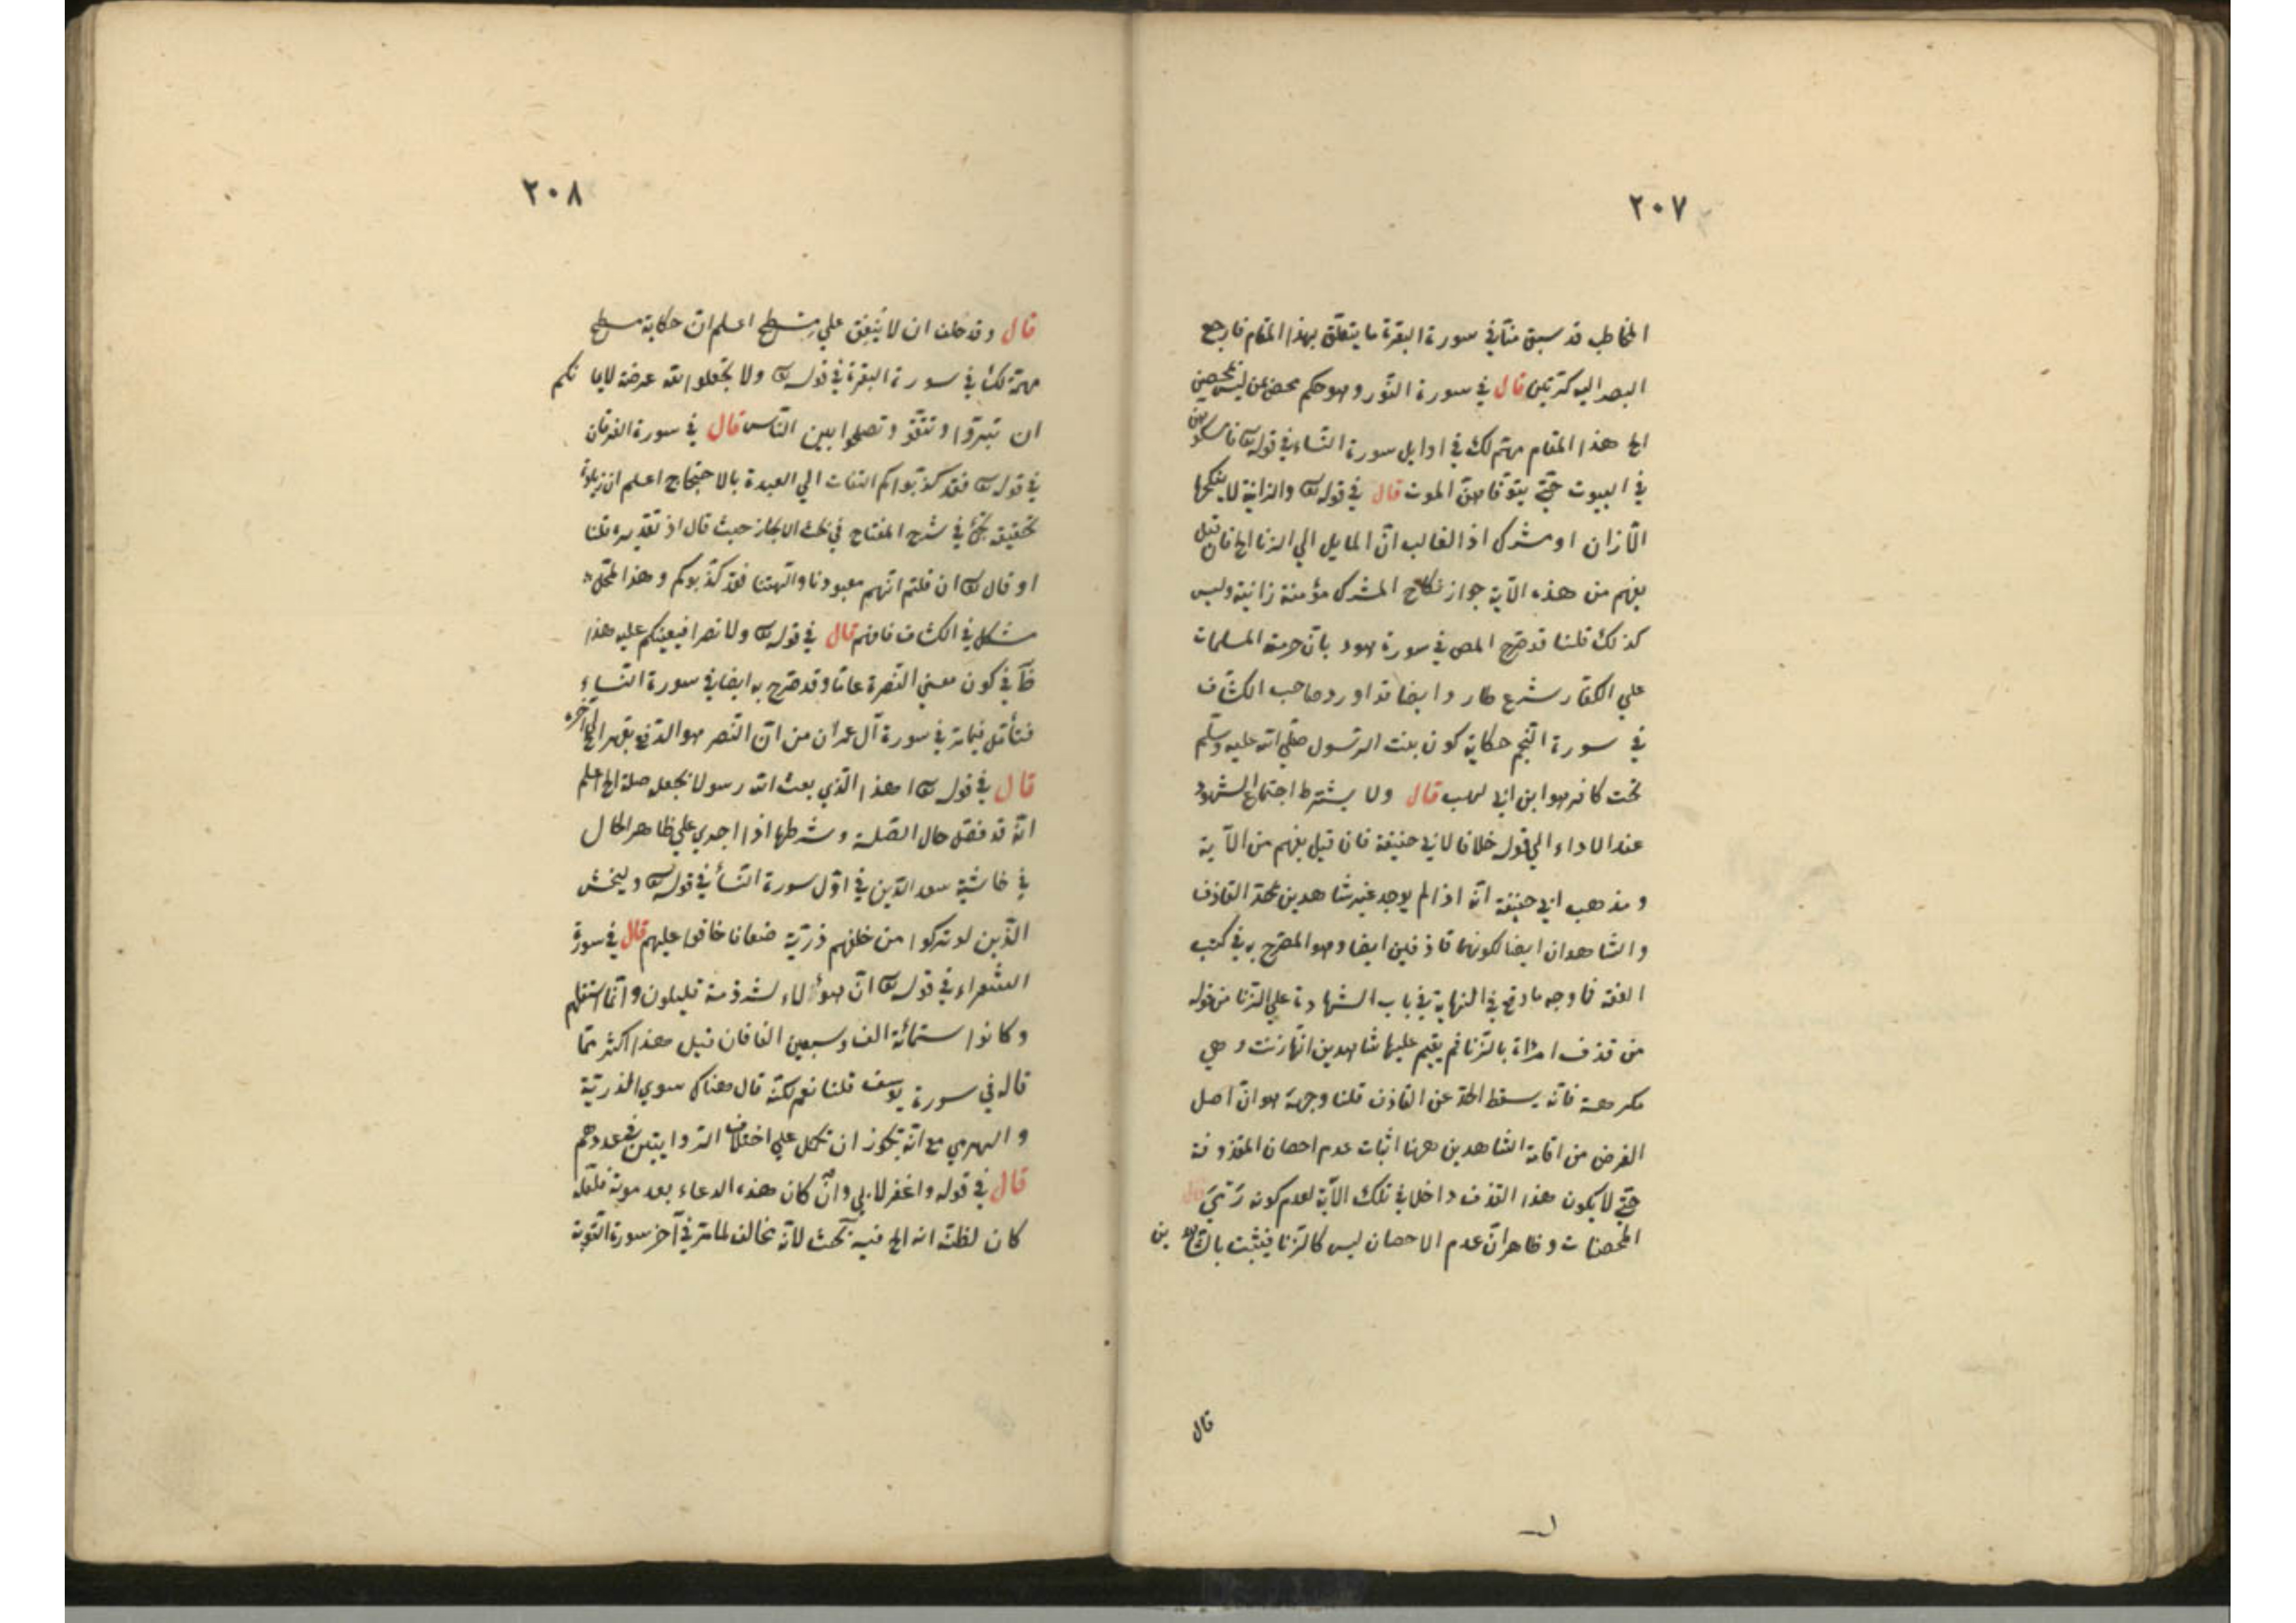 ٢٠٧
المخاطب قد سبق منّا في سورة البقرة ما يتعلّق بهذا المقام فارجع
البصر اليه كرّتين قال في سورة النّور وهو حكم مخصّ بمن ليس بمحصن
الخ هذا المقام مهّم لك في اوايل سورة النّساء في قوله تع فامسكوهنّ
في البيوت حتّي يتوفّاهنّ الموت قال في قوله تع والزانية لا ينكحها
الّا زان او مشرك اذ الغالب انّ المايل الي الزنا الخ فان قيل
يفهم من هذه الآية جواز نكاح المشرك مؤمنة زانية وليس
كذلك قلنا قد صرّح المص في سورة هود بانّ حرمة المسلمات
علي الكفّار شرع طار وايضا قد اورد صاحب الكشّاف
في سورة النّجم حكاية كون بنت الرّسول صلّي الله عليه وسلّم
تحت كافر هو ابن ابي لهب قال ولا يشترط اجتماع الشهود
عند الاداء الي قوله خلافا لابي حنيفة فان قيل يفهم من الآية
ومذهب ابي حنيفة انّه اذا لم يوجد غير شاهدين يحدّ القاذف
والشّاهدان ايضا لكونهما قاذفين ايضا وهو المصرّح به في كتب
الفقه فما وجه ما وقع في النهاية في باب الشهادة علي الزّنا من قوله
من قذف امرأة بالزّنا فم يقيم عليها شاهدين انّها زنت وهي
مكرهة فانّه يسقط الحدّ عن القاذف قلنا وجهه هو انّ اصل
الغرض من اقامة الشاهدين ههنا اثبات عدم احصان المقذوفة
حتّي لا يكون هذا القذف داخلا في تلك الآية لعدم كونه رَمْيَ
المحصنات وظاهر انّ عدم الاحصان ليس كالزّنا فيثبت بالشّاهدين
قال
٢٠٨
قال وقد حلف ان لا يُنفِق علي مسطح اعلم انّ حكاية مسطح
مهمّة لك في سورة البقرة في قوله تع ولا تجعلوا الله عرضة لايمانكم
ان تبرّوا وتتّقو وتصلحوا بين النّاس قال في سورة الفرقان
في قوله تع فقد كذّبوكم التفات الي العبدة بالاحتجاج اعلم ان زيادة
تحقيقه يجئ في شرح المفتاح في بحث الايجاز حيث قال اذ تقديره قلنا
او قال تع ان قلتم انّهم معبودنا وآلهتنا فقد كذّبوكم وهذا المحلّ
مشكل في الكشّاف فافهم قال في قوله تع ولا نصرا فيعينكم عليه هذا
ظآ في كون معني النّصرة عامّا وقد صرّح به ايضا في سورة النّساء
فتأمّل فيما مرّ في سورة آل عمران من انّ النّصر هو الدّفع بقهر الي آخره
قال في قوله تع اهذا الّذي بعث الله رسولا بجعله صلة الخ اعلم
انّه قد فصّل حال الصّلة وشرطها اذا اجري علي ظاهر الحال
في حاشية سعد الدّين في اوّل سورة النّسأ في قوله تع وليخش
الّذين لو تركوا من خلفهم ذرّيّة ضعافا خافوا عليهم قال في سورة
الشّعراء في قوله تع انّ هؤلاء لشرذمة قليلون وانّما استقلّهم
وكانوا ستمائة الف وسبعين الفا فان قيل هذا اكثر ممّا
قاله في سورة يوسف قلنا نعم لكنّه قال هناك سوي الذرّيّة
والهرمي مع انّه يجوز ان تحمل علي اختلاف الرّوايتين في عددهم
قال في قوله واغفر لابي وان كان هذه الدعاء بعد موته فلعلّه
كان لظنّه انه الخ فيه بحث لانّه مخالف لما مرّ في آخر سورة التّوبة